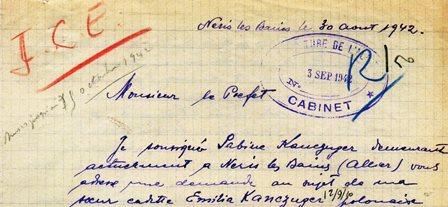 Néris les Bains le 30 août 1942.
J.C.E.
3 SEP 1942
N°
CABINET
12/9
Monsieur le Préfet
Je soussigné Sabine Kanczuger demeurant
actuellement à Néris les Bains (Allier) vous
adresse une demande au sujet de ma
sœur cadette Emilia Kanczuger polonaise